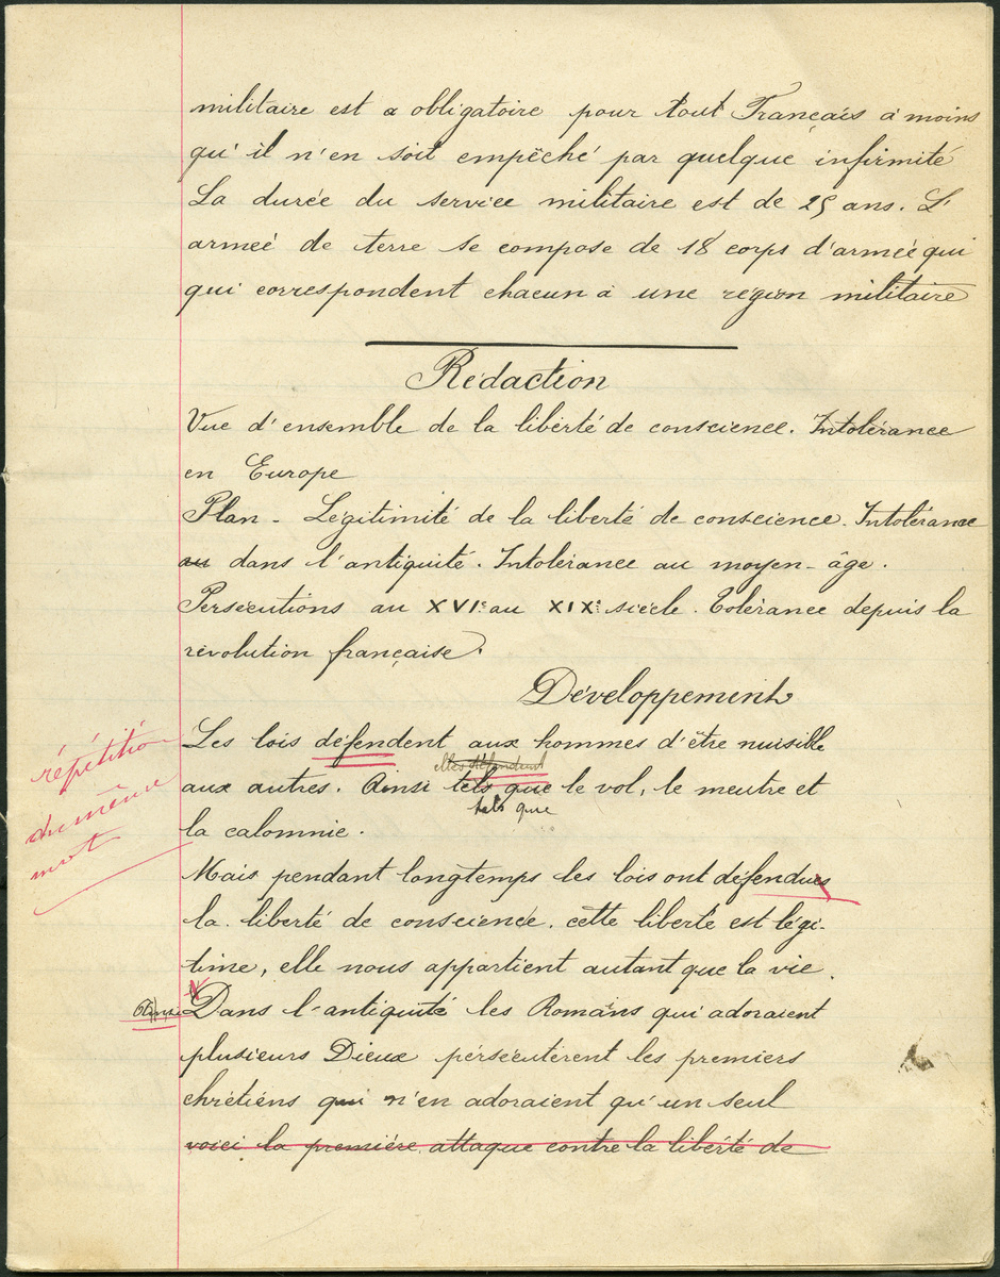 militaire est a obligatoire pour tout Français à moins
qu'il n'en soit empêché par quelque infirmité
La durée du service militaire est de 25 ans. L'
armeé de terre se compose de 18 corps d'armeé qui
qui correspondent chacun à une région militaire
Rédaction
Vue d'ensemble de la liberté de conscience. Intolérance
en Europe
Plan - Légitimité de la liberté de conscience. Intolérance
au dans l'antiquité. Intolérance au moyen-âge.
Persécutions au XVIe au XIXe siècle. Tolérance depuis la
révolution française.
Développement
Les lois défendent aux hommes d'être nuisible
répétition
du même
mot
elles défendent
aux autres. Ainsi tels que le vol, le meutre et
tels que
la calomnie.
Mais pendant longtemps les lois ont défendues
la liberté de conscience. cette liberté est légi-
time, elle nous appartient autant que la vie.
Ainsi Dans l'antiquité les Romains qui adoraient
plusieurs Dieux persécutèrent les premiers
chrétiens qui n'en adoraient qu'un seul
voici la première attaque contre la liberté de